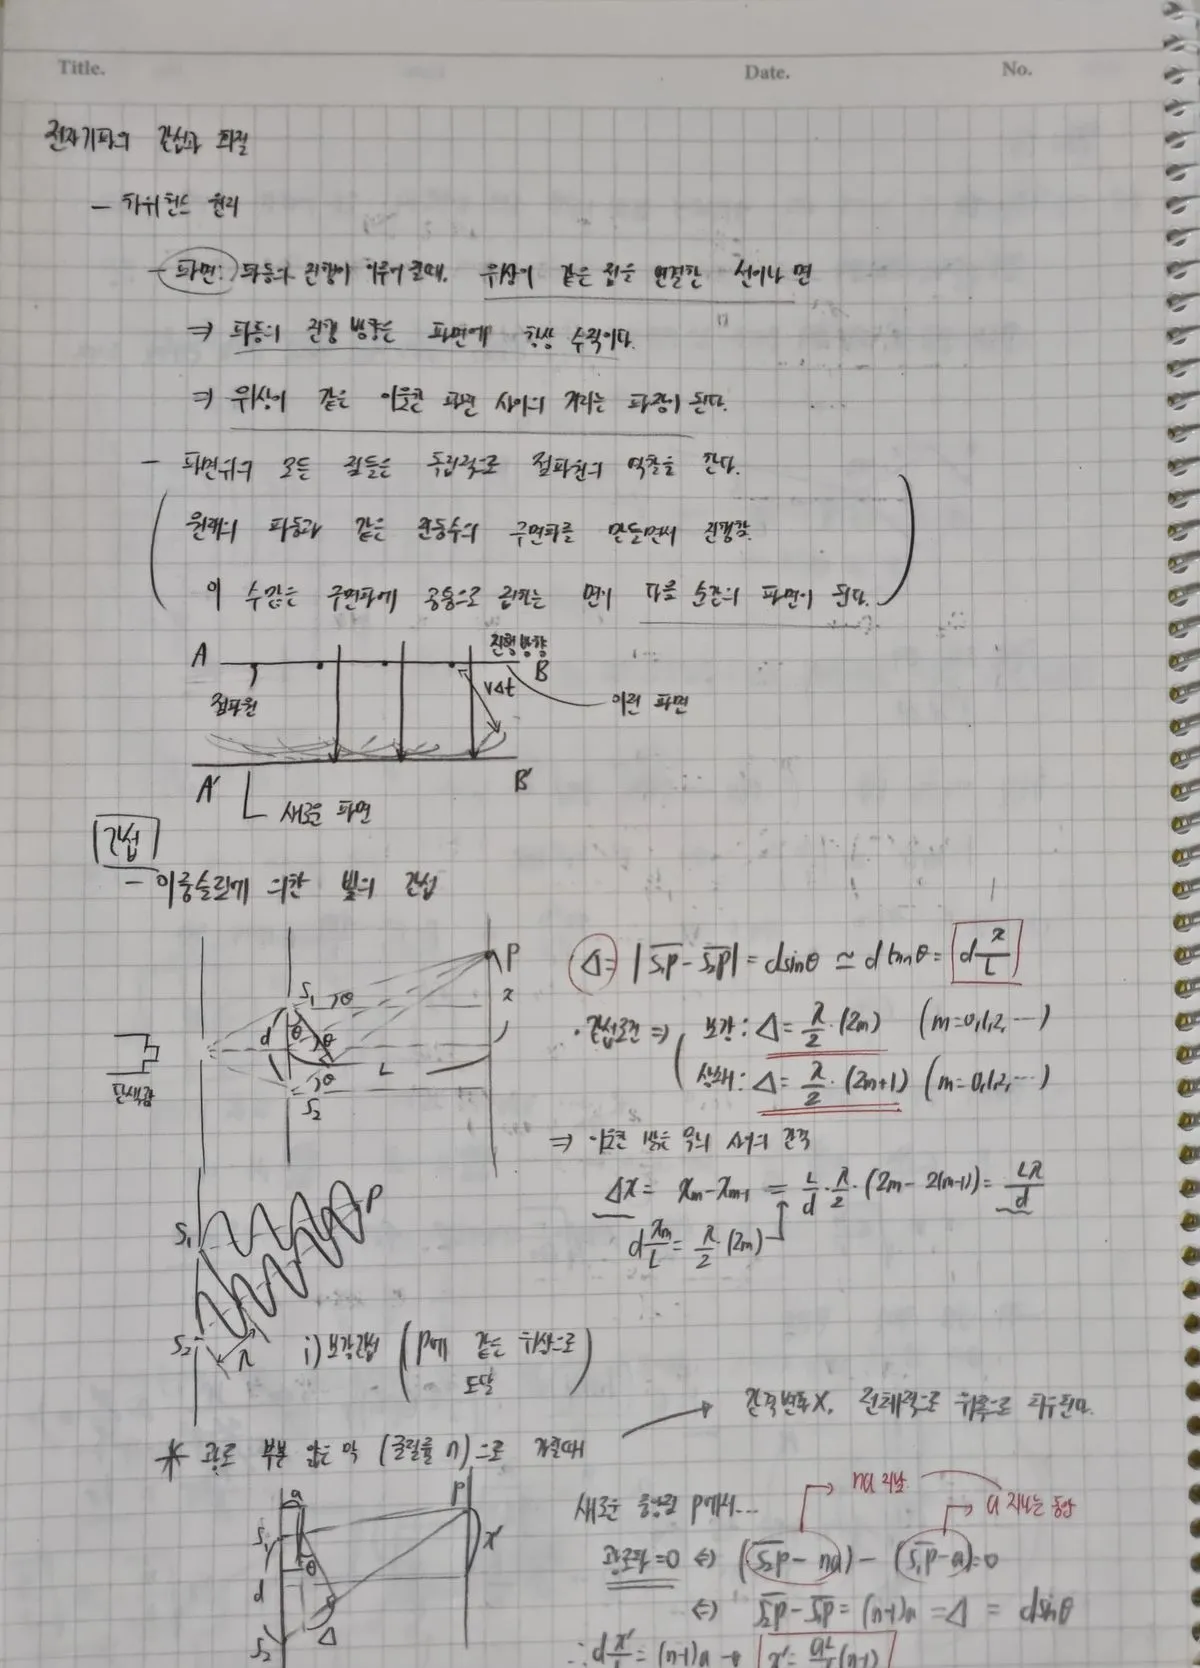 Title.
Date.
No.
전자기파의 간섭과 회절
- 하위헌스 원리
- 파면: 파동의 진행이 이루어질때, 위상이 같은 점을 연결한 선이나 면
⇒ 파동의 진행 방향은 파면에 항상 수직이다.
⇒ 위상이 같은 이웃한 파면 사이의 거리는 파장이 된다.
- 파면위의 모든 점들은 독립적으로 점파원의 역할을 한다.
원래의 파동과 같은 진동수의 구면파를 만들면서 진행함.
이 수많은 구면파에 공통으로 접하는 면이 다음 순간의 파면이 된다.
A
진행방향
B
점파원
vΔt
이전 파면
A'
B'
새로운 파면
간섭
- 이중슬릿에 의한 빛의 간섭
P
x
S₁
θ
d
θ
θ
L
θ
S₂
단색광
Δ = |S₁P - S₂P| = dsinθ ≃ d tanθ = d x/L
· 간섭조건 ⇒ 보강: Δ = λ/2 · (2m) (m=0,1,2, ···)
상쇄: Δ = λ/2 · (2m+1) (m=0,1,2, ···)
⇒ 이웃한 밝은 무늬 사이의 간격
Δx = xₘ - xₘ₋₁ = L/d · λ/2 · (2m - 2(m-1)) = Lλ/d
d xₘ/L = λ/2 · (2m)
S₁
P
S₂
λ
i) 보강간섭 (P에 같은 위상으로 도달)
간격변화X, 전체적으로 위쪽으로
* 광로 부분 얇은 막 (굴절률 n)으로 가릴때
a
S₁
θ
d
S₂
Δ
P
x'
새로운 중앙점 P에서...
na 지남
a 지나는 동안
광로차=0 ⇔ (S₂P - na) - (S₁P - a)=0
⇔ S₂P - S₁P = (n-1)a = Δ = dsinθ
∴ d x'/L = (n-1)a → x' = aL/d (n-1)